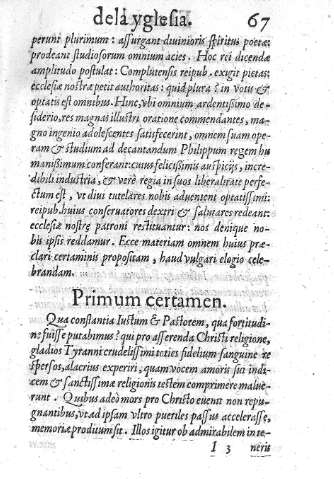 dela yglesia. 67
perunt plurimum: assurgant diuinioris spiritus poetæ:
prodeant studiosorum omnium acies. Hoc rei dicendæ
amplitudo postulat: Complutensis reipub. exigit pietas:
ecclesiæ nostræ petit authoritas: quid plura? in votis &
optatis est omnibus. Hinc, vbi omnium ardentissimo de-
siderio, res magnas illustri oratione commendantes, ma-
gno ingenio adolescentes satisfecerint, omnem suam ope-
ram & studium ad decantandum Philippum regem hu
manissimum conferant: cuius felicissimis auspicijs, incre-
dibili industria, & verè regia in suos liberalitate perfe-
ctum est, vt diui tutelares nobis aduentent optatissimi:
reipub. huius conseruatores dextri & salutares redeant:
ecclesiæ nostræ patroni restituantur: nos denique no-
bis ipsis reddamur. Ecce materiam omnem huius præ-
clari certaminis propositam, haud vulgari elogio cele-
brandam.
Primum certamen.
Qua constantia Iustum & Pastorem, qua fortitudi-
ne fuisse putabimus? qui pro asserenda Christi religione,
gladios Tyranni crudelissimi toties fidelium sanguine re
spersos, alacrius experiri, quam vocem amoris sui indi-
cem & sanctissimæ religionis testem comprimere malue-
runt. Quibus adeò mors pro Christo euenit non repu-
gnantibus, vt ad ipsam vltro pueriles passus accelerasse,
memoriæ proditum sit. Illos igitur ob admirabilem in te-
I 3 neris